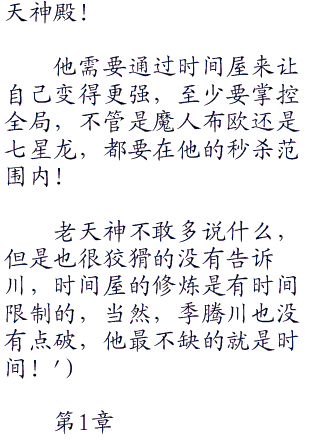 天神殿！
他需要通过时间屋来让
自己变得更强，至少要掌控
全局，不管是魔人布欧还是
七星龙，都要在他的秒杀范
围内！
老天神不敢多说什么，
但是也很狡猾的没有告诉
川，时间屋的修炼是有时间
限制的，当然，季腾川也没
有点破，他最不缺的就是时
间！′)
第1章